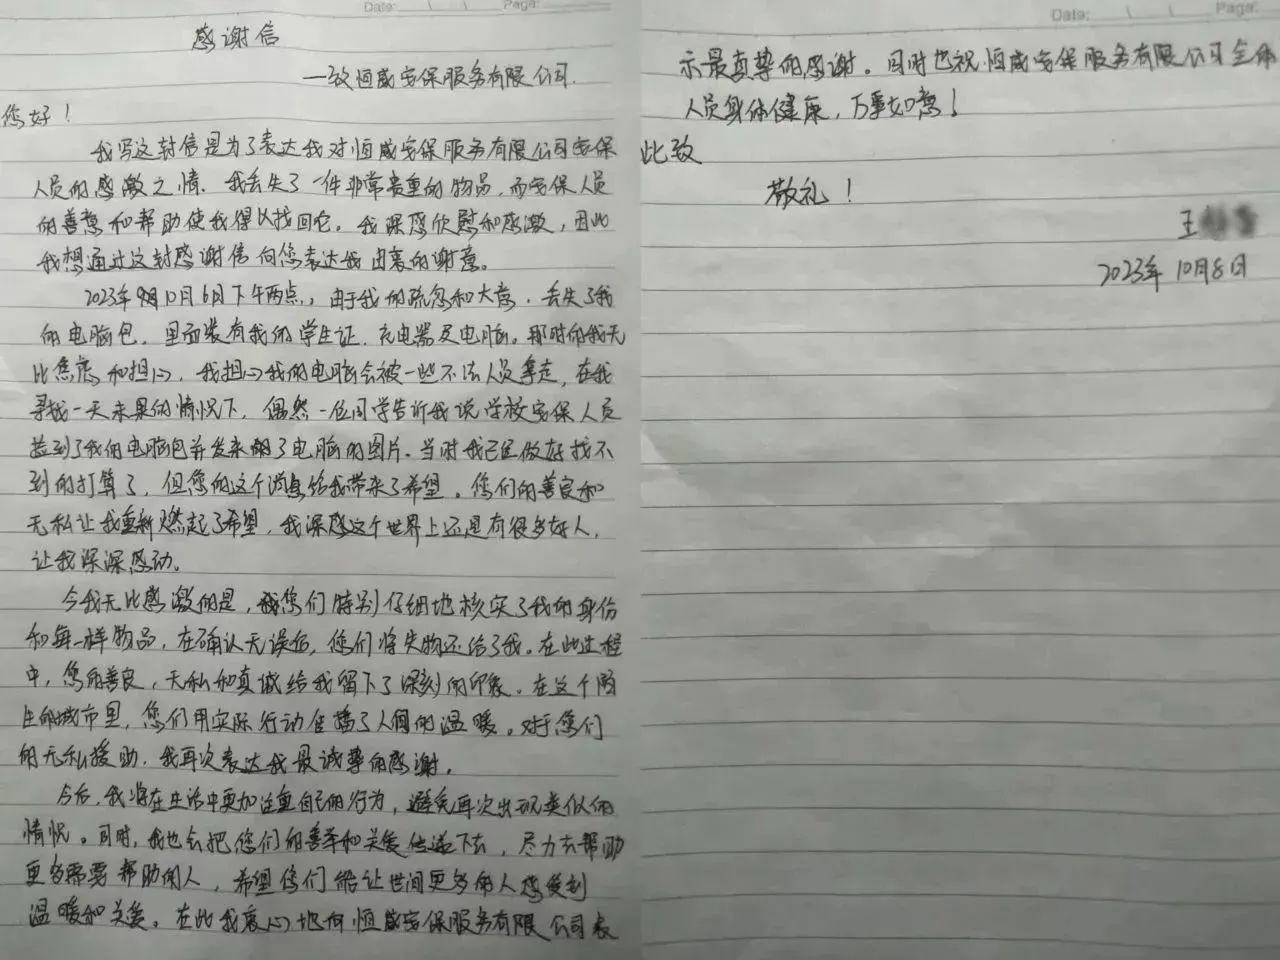 Date: \ \ Page:
感谢信
—致恒威安保服务有限公司.
您好！
我写这封信是为了表达我对恒威安保服务有限公司安保
人员的感激之情.我丢失了一件非常贵重的物品,而安保人员
的善意和帮助使我得以找回它。我深感欣慰和感激,因此
我想通过这封感谢信向您表达我由衷的谢意。
2023年10月6日下午两点,由于我的疏忽和大意,丢失了我
的电脑包,里面装有我的学生证,充电器及电脑。那时的我无
比焦虑和担心,我担心我的电脑会被一些不法人员拿走,在我
寻找一天未果的情况下,偶然一位同学告诉我说学校安保人员
捡到了我的电脑包并发来了电脑的图片.当时我已经做好找不
到的打算了,但您的这个消息给我带来了希望。您们的善良和
无私让我重新燃起了希望,我深感这个世界上还是有很多好人,
让我深深感动。
令我无比感激的是,您们特别仔细地核实了我的身份
和每一样物品,在确认无误后,您们将失物还给了我。在此过程
中,您的善良,无私和真诚给我留下了深刻的印象。在这个陌
生的城市里,您们用实际行动传播了人间的温暖。对于您们
的无私援助,我再次表达我最诚挚的感谢。
今后,我将在生活中更加注重自己的行为,避免再次出现类似的
情况。同时,我也会把您们的善举和关爱传递下去,尽力去帮助
更多需要帮助的人,希望您们能让世间更多的人感受到
温暖和关爱。在此我衷心地向恒威安保服务有限公司表
Date: \ \ Page:
示最真挚的感谢。同时也祝恒威安保服务有限公司全体
人员身体健康,万事如意！
此致
敬礼！
王
2023年10月8日